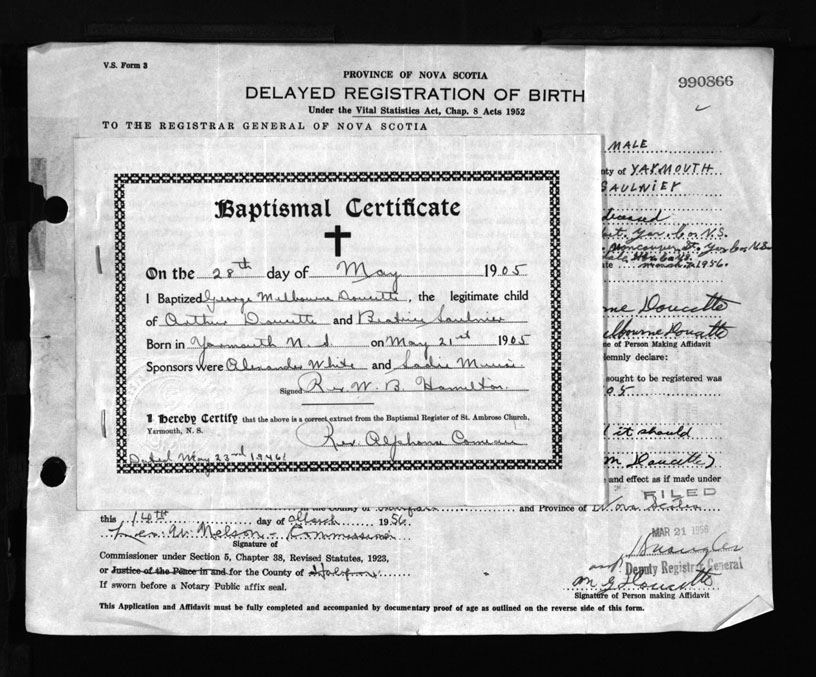 V.S. Form 3
PROVINCE OF NOVA SCOTIA
990866
DELAYED REGISTRATION OF BIRTH
Under the Vital Statistics Act, Chap. 8 Acts 1952
TO THE REGISTRAR GENERAL OF NOVA SCOTIA
MALE
nty of YARMOUTH
SAULNIER
Baptismal Certificate
On the 28th day of May 1905
I Baptized George Melbourne Doucette, the legitimate child
of Arthur Doucette and Beatrice Saulnier
Born in Yarmouth N. S. on May 21st 1905
Sponsors were Alexander White and Sadie
Signed Rev W. B. Hamilton
I Hereby Certify that the above is a correct extract from the Baptismal Register of St. Ambrose Church,
Yarmouth, N. S.
Rev. Alphonse Comeau
Dated May 23rd 1946
eceased
Yar. Co N.S.
Yar Co N.S.
ate March 1956.
me Doucette
elbourne Doucette
re of Person Making Affidavit
lemnly declare:
sought to be registered was
05
it should
M Doucette)
and effect as if made under
in the County of Halifax and Province of Nova Scotia
FILED
this 14th day of March 1956
Nelson - Commissioner
Signature of
MAR 21 1956
Commissioner under Section 5, Chapter 38, Revised Statutes, 1923,
or Justice of the Peace in and for the County of Halifax
Deputy Registrar General
If sworn before a Notary Public affix seal.
M G Doucette
Signature of Person making Affidavit
This Application and Affidavit must be fully completed and accompanied by documentary proof of age as outlined on the reverse side of this form.